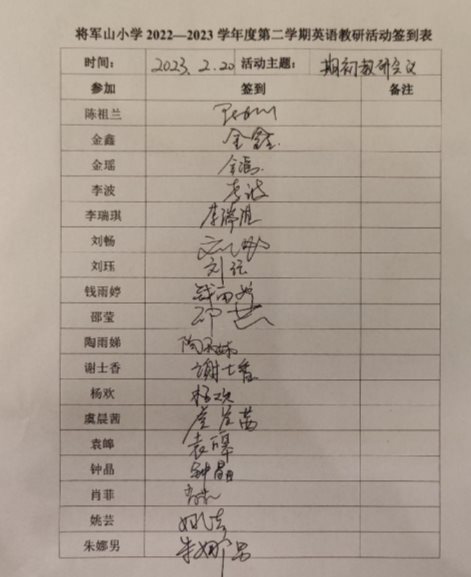 将军山小学 2022—2023 学年度第二学期英语教研活动签到表
时间： 2023. 2. 20 活动主题： 期初教研会议
参加 签到 备注
陈祖兰
金鑫 金鑫
金瑶 金瑶
李波 李波
李瑞琪 李瑞琪
刘畅 刘畅
刘珏 刘珏
钱雨婷 钱雨婷
邵莹 邵莹
陶雨娣 陶雨娣
谢士香 谢士香
杨欢 杨欢
虞晨茜 虞晨茜
袁皞 袁皞
钟晶 钟晶
肖菲 肖菲
姚芸 姚芸
朱娜男 朱娜男